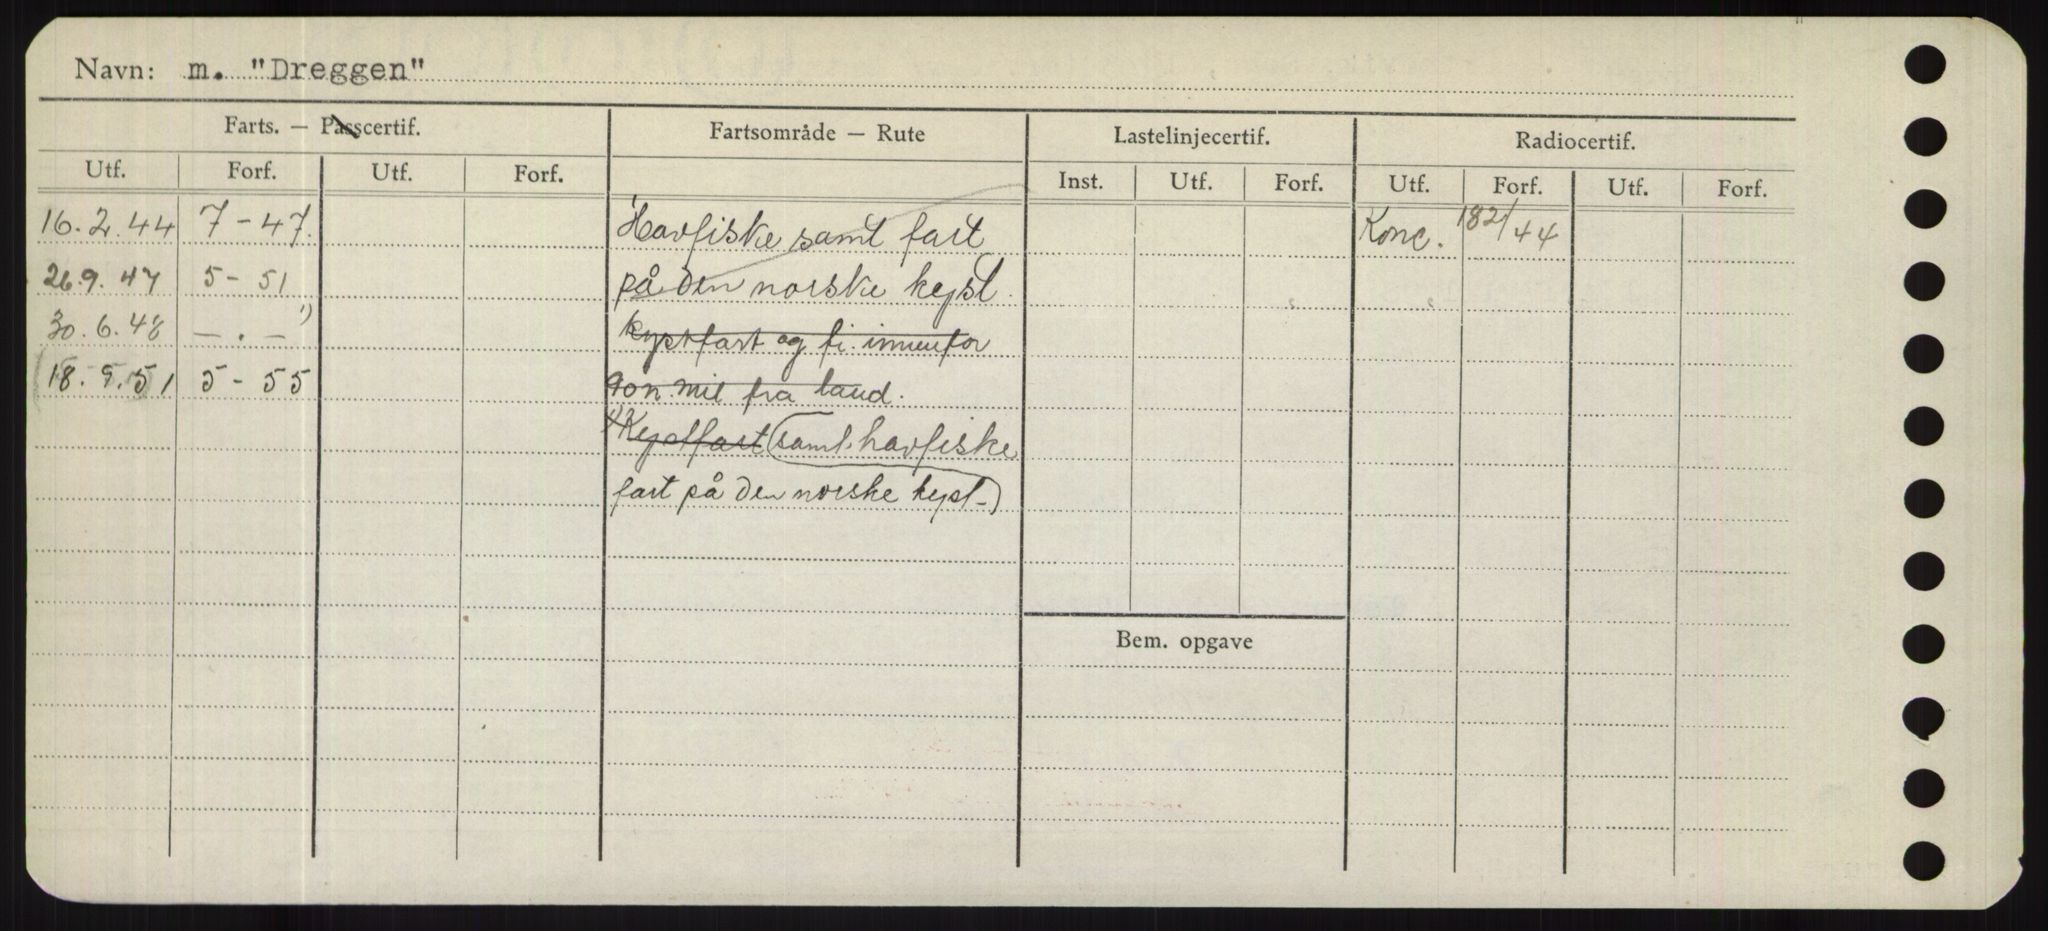 Navn: m. "Dreggen"
Farts. — Passcertif. Fartsområde — Rute Lastelinjecertif. Radiocertif.
Utf. Forf. Utf. Forf. Inst. Utf. Forf. Utf. Forf. Utf. Forf.
16.2.44 7-47. Havfiske samt fart Konc. 182/44
26.9.47 5-51 på den norske kyst.
30.6.48 — . — 1) kystfart og fi innenfor
18.9.51 5-55 90 n. mil fra land.
1) Kystfart (samt havfiske
fart på den norske kyst-)
Bem. opgave